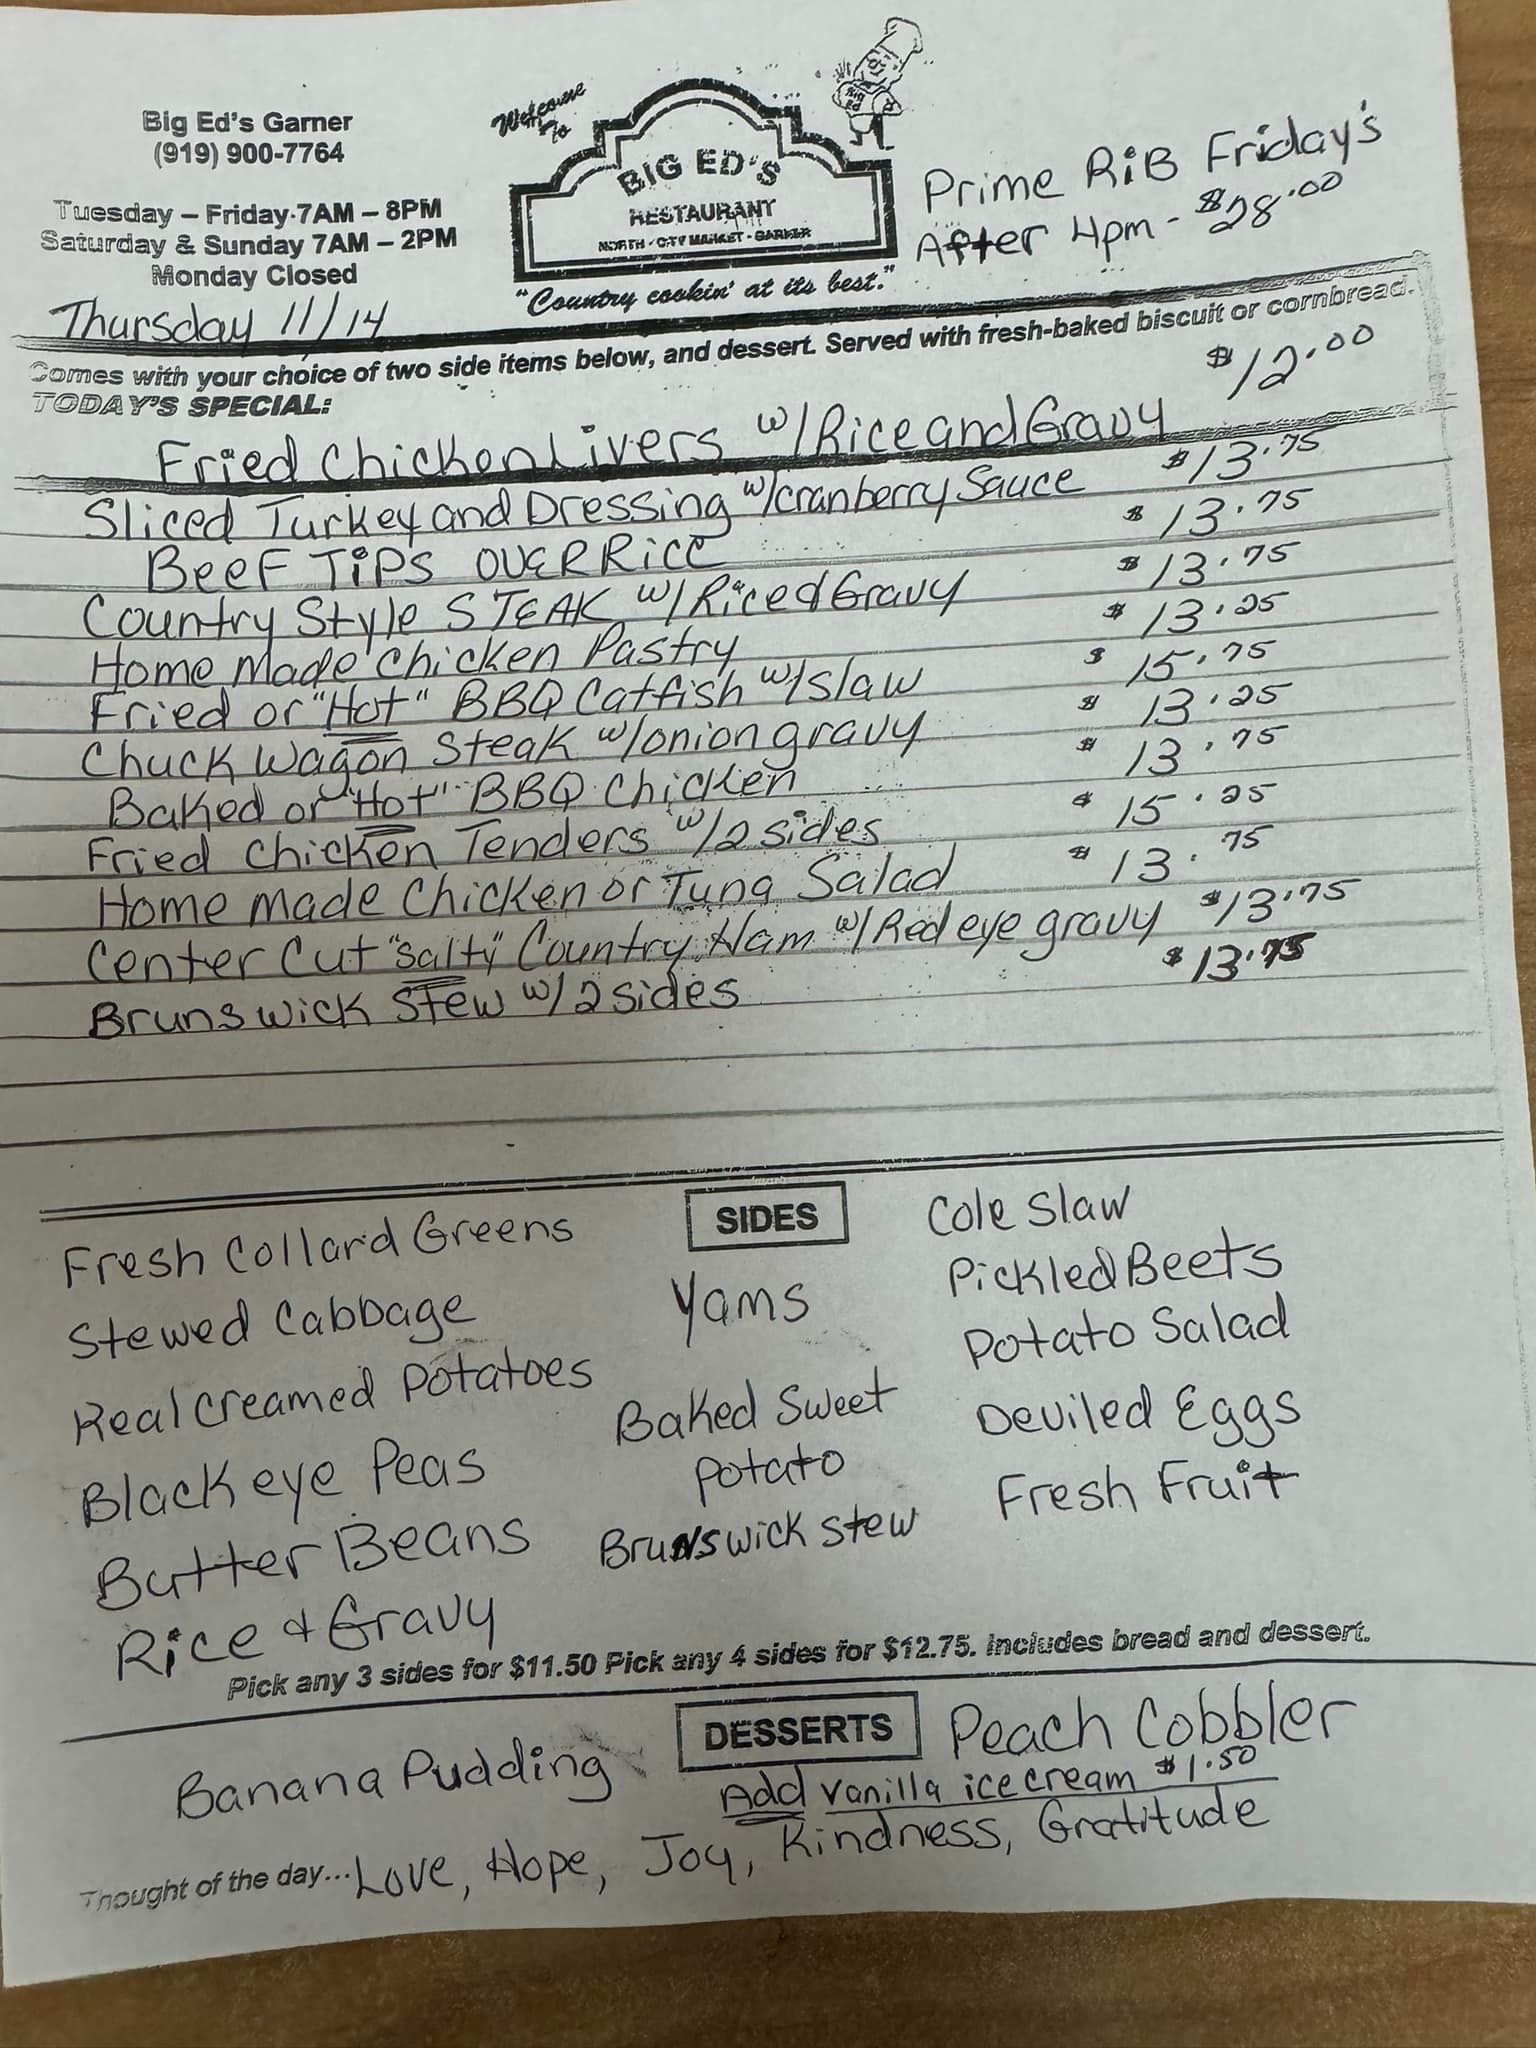 Big Ed's Garner
(919) 900-7764
Tuesday – Friday 7AM – 8PM
Saturday & Sunday 7AM – 2PM
Monday Closed
Thursday 11/14
Welcome
To
BIG ED'S
RESTAURANT
NORTH - CITY MARKET - GARNER
"Country cookin' at its best."
Big
Ed
Prime RiB Friday's
After 4pm - $28.00
Comes with your choice of two side items below, and dessert. Served with fresh-baked biscuit or cornbread.
TODAY'S SPECIAL:
Fried Chicken Livers w/Rice and Gravy $12.00
Sliced Turkey and Dressing w/cranberry Sauce $13.75
BeeF TiPS OVER RICE $13.75
Country Style STEAK w/Rice & Gravy $13.75
Home made Chicken Pastry $13.25
Fried or "Hot" BBQ Catfish w/slaw $15.75
Chuck Wagon Steak w/onion gravy $13.25
Baked or "Hot" BBQ Chicken $13.75
Fried Chicken Tenders w/2 sides $15.25
Home made Chicken or Tuna Salad $13.75
Center Cut "Salty" Country Ham w/Red eye gravy $13.75
Brunswick Stew w/2 sides $13.75
SIDES
Fresh Collard Greens
Stewed Cabbage
Real Creamed Potatoes
Black eye Peas
Butter Beans
Rice & Gravy
Yams
Baked Sweet
Potato
Brunswick Stew
Cole Slaw
Pickled Beets
Potato Salad
Deviled Eggs
Fresh Fruit
Pick any 3 sides for $11.50 Pick any 4 sides for $12.75. Includes bread and dessert.
DESSERTS
Banana Pudding
Peach Cobbler
Add vanilla ice cream $1.50
Thought of the day... Love, Hope, Joy, Kindness, Gratitude